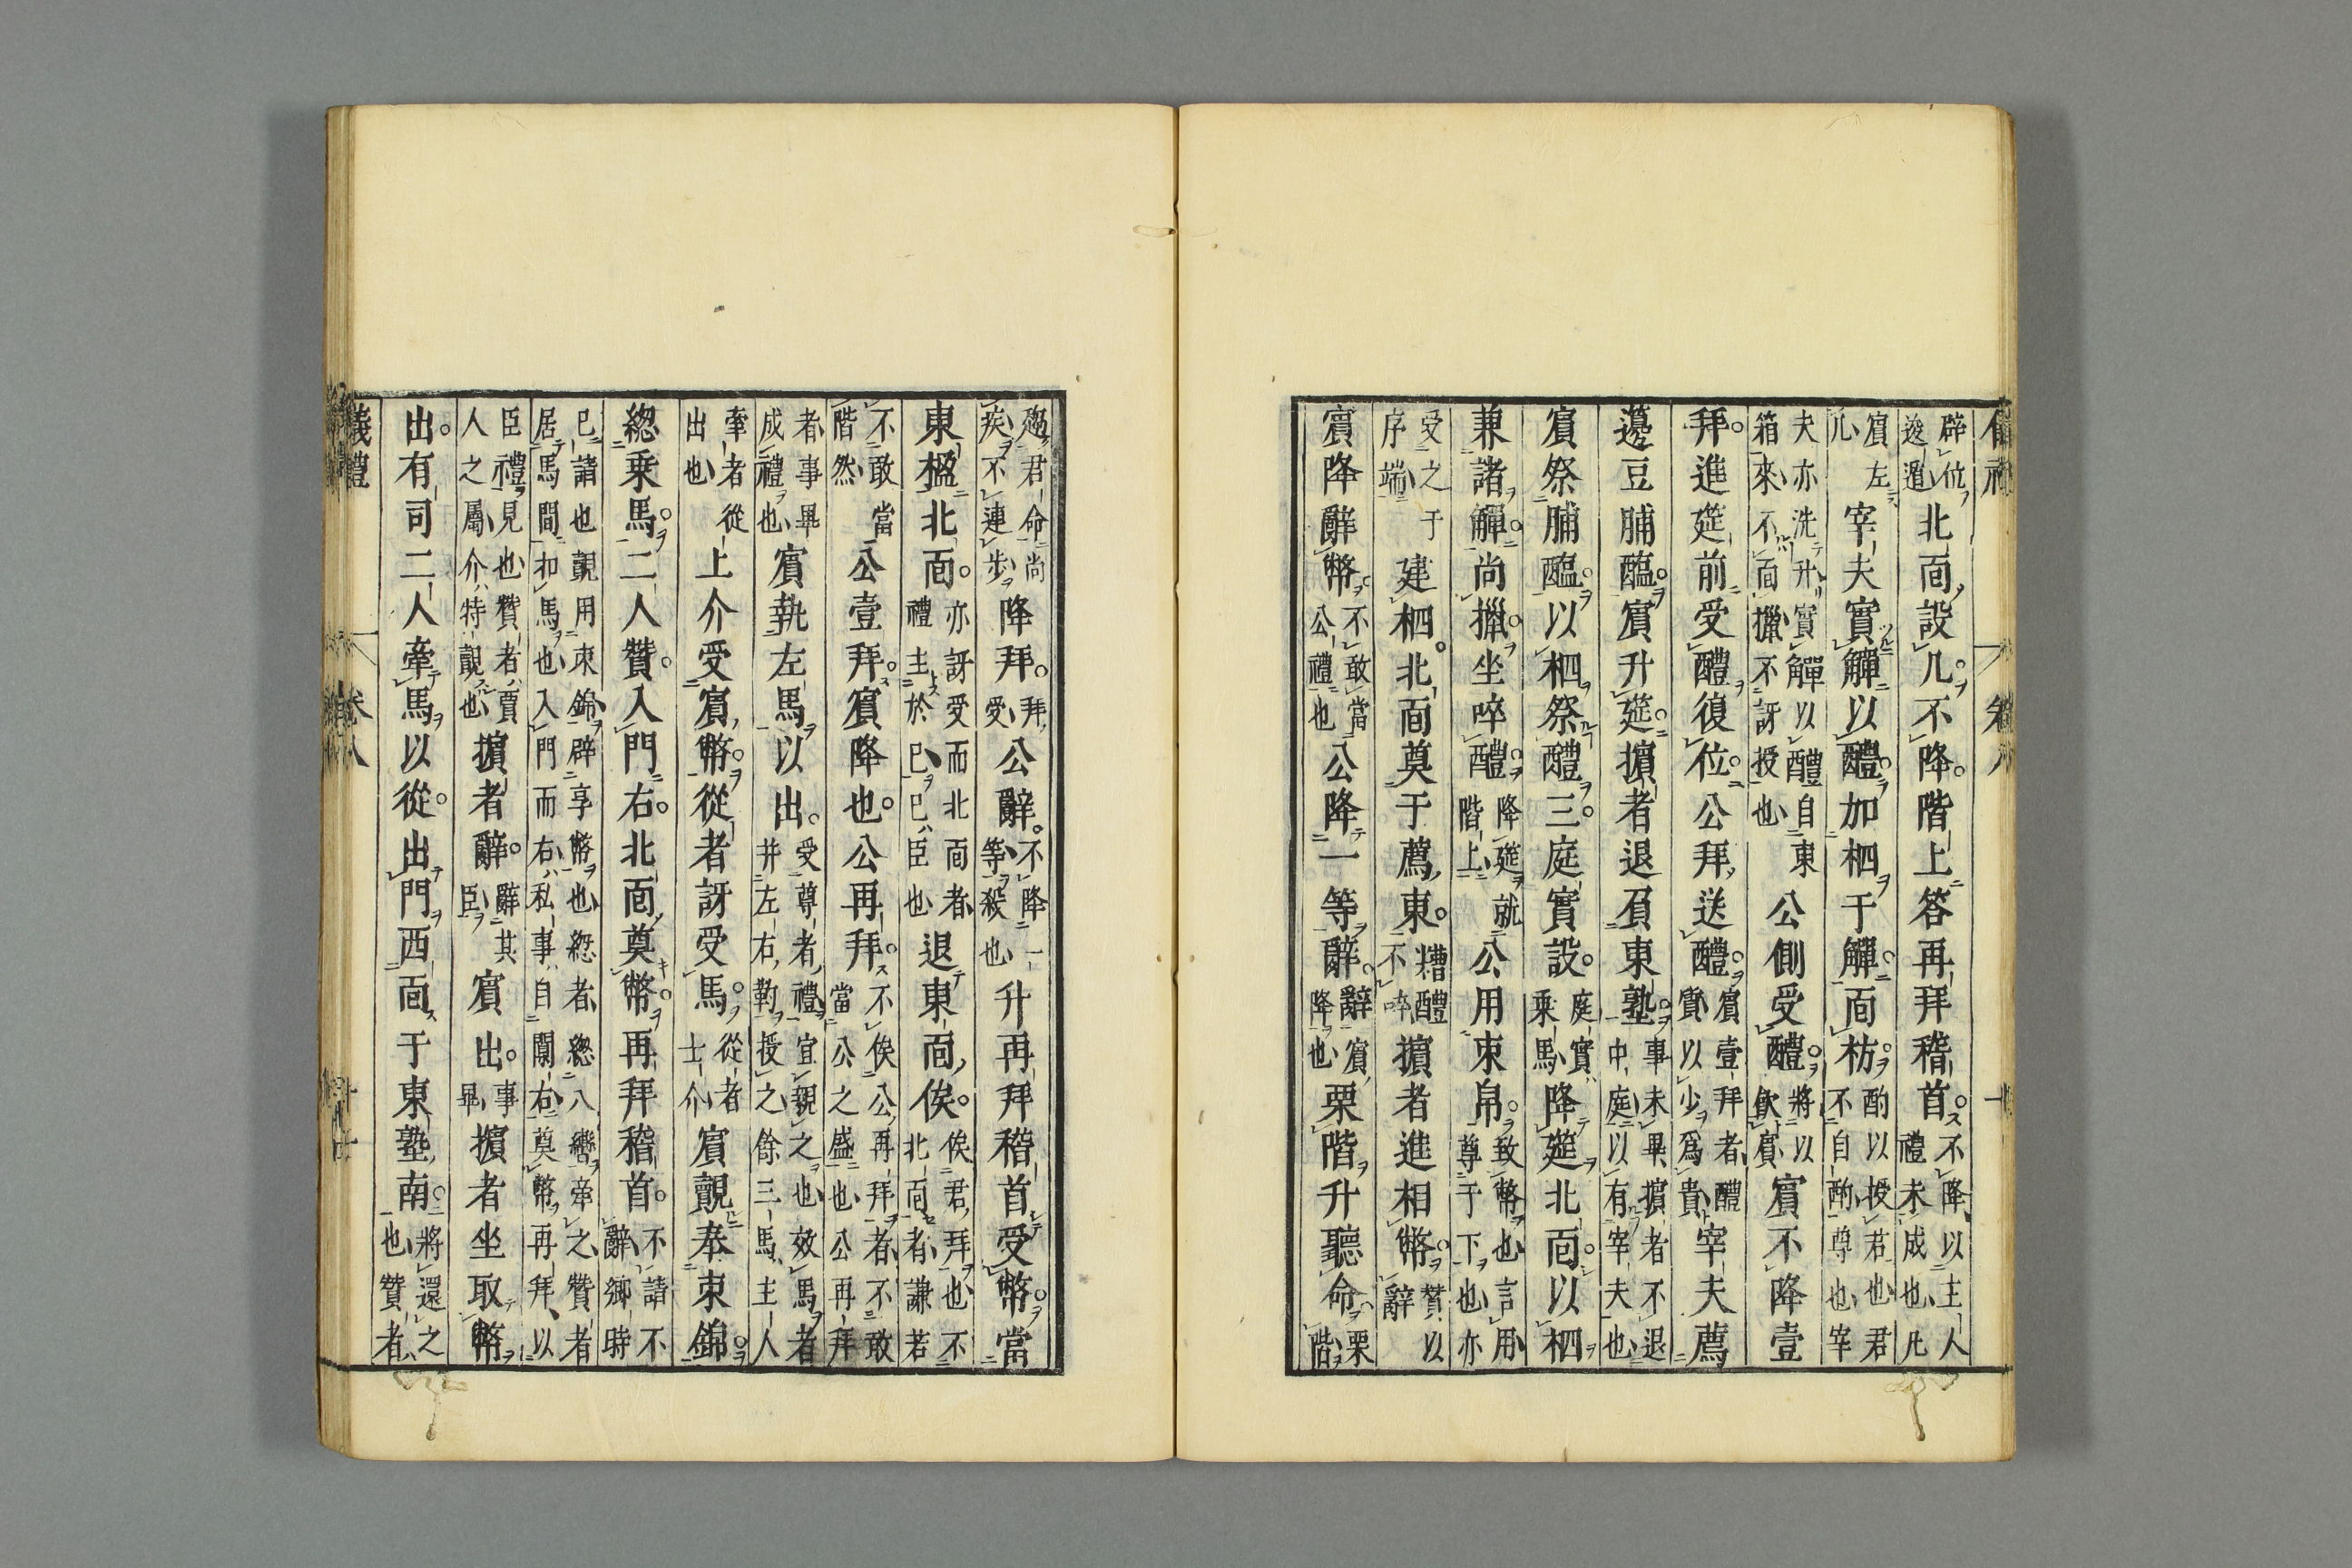 辟位逡遁北面設几不降階上答再拜稽首不降以主人禮未成也凡
賓左几宰夫實觶以醴加柶于觶面枋酌以授君也君不自酌尊也宰
夫亦洗升實觶以醴自東箱來不面擸不訝授也公側受醴將以飲賓賓不降壹
拜進筵前受醴復位公拜送醴賓壹拜者醴質以少爲貴宰夫薦
籩豆脯醢賓升筵擯者退負東塾事未畢擯者不退中庭以有宰夫也
賓祭脯醢以柶祭醴三庭實設庭實乘馬降筵北面以柶
兼諸觶尚擸坐啐醴降筵就階上公用束帛致幣也言用尊于下也亦
受之于序端建柶北面奠于薦東糟醴不啐擯者進相幣贊以辭
賓降辭幣不敢當公禮也公降一等辭辭賓降也栗階升聽命栗階
趨君命尚疾不連步降拜拜受公辭不降一等殺也升再拜稽首受幣當
東楹北面亦訝受而北面者禮主於己己臣也退東面俟俟君拜也不北面者謙若
不敢當階然公壹拜賓降也公再拜不俟公再拜者不敢當公之盛也公再拜
者事畢成禮也賓執左馬以出受尊者禮宜親之也效馬者并左右靮授之餘三馬主人
牽者從出也上介受賓幣從者訝受馬從者士介賓覿奉束錦
總乘馬二人贊入門右北面奠幣再拜稽首不請不辭鄉時
已諸也覿用束錦辟享幣也總者總八轡牽之贊者居馬間扣馬也入門而右私事自闑右奠幣再拜以
臣禮見也贊者賈人之屬介特覿也擯者辭辭其臣賓出事畢擯者坐取幣
出有司二人牽馬以從出門西面于東塾南將還之也贊者
儀禮 卷八